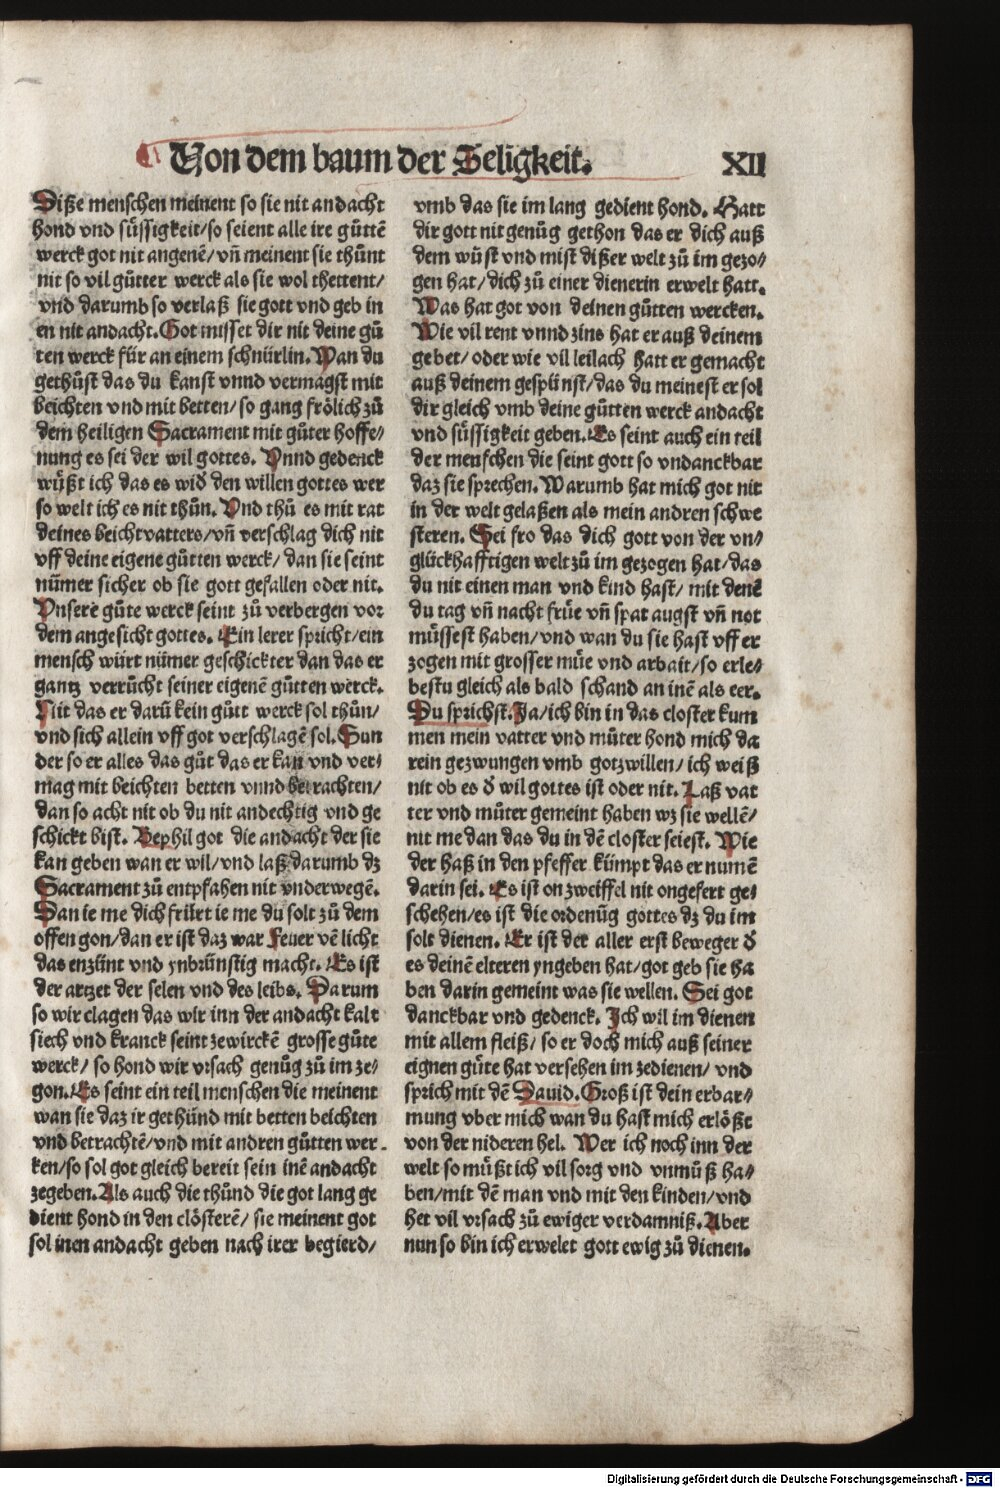 Von dem baum der Seligkeit.
XII
Diße menschen meinent so sie nit andacht
hond vnd süssigkeit/so seient alle ire güttē
werck got nit angenē/vn̄ meinent sie thünt
nit so vil gütter werck als sie wol thettent/
vnd darumb so verlaß sie gott vnd geb in
en nit andacht. Got misset dir nit deine gů
ten werck für an einem schnürlin. Wan du
gethůst das du kanst vnnd vermagst mit
beichten vnd mit betten/so gang frölich zů
dem heiligen Sacrament mit gůter hoffe/
nung es sei der wil gottes. Vnnd gedenck
wüßt ich das es wid̕ den willen gottes wer
so welt ich es nit thůn. Vnd thů es mit rat
deines beichtvatters/vn̄ verschlag dich nit
vff deine eigene gůtten werck/dan sie seint
nümer sicher ob sie gott gefallen oder nit.
Vnserē gůte werck seint zů verbergen vor
dem angesicht gottes. Ein lerer spricht/ein
mensch würt nümer geschickter dan das er
gantz verrůcht seiner eigenē gůtten werck.
Nit das er darū kein gůtt werck sol thůn/
vnd sich allein vff got verschlagē sol. Sun
der so er alles das gůt das er kan vnd ver/
mag mit beichten betten vnnd betrachten/
dan so acht nit ob du nit andechtig vnd ge
schickt bist. Bephil got die andacht der sie
kan geben wan er wil/vnd laß darumb dz
Sacrament zů entpfahen nit vnderwegē.
Dan ie me dich frürt ie me du solt zů dem
offen gon/dan er ist daz war feuer vē licht
das enzünt vnd ynbrünstig macht. Es ist
der artzet der selen vnd des leibs. Darum
so wir clagen das wir inn der andacht kalt
siech vnd kranck seint zewirckē grosse gůte
werck/so hond wir vrsach genůg zů im ze/
gon. Es seint ein teil menschen die meinent
wan sie daz ir gethünd mit betten beichten
vnd betrachtē/vnd mit andren gůtten wer-
ken/so sol got gleich bereit sein inē andacht
zegeben. Als auch die thůnd die got lang ge
dient hond in den clösterē/sie meinent got
sol inen andacht geben nach irer begierd/
vmb das sie im lang gedient hond. Hatt
dir gott nit genůg gethon das er dich auß
dem wůst vnd mist dißer welt zů im gezo/
gen hat/dich zů einer dienerin erwelt hatt.
Was hat got von deinen gůtten wercken.
Wie vil rent vnnd zins hat er auß deinem
gebet/oder wie vil leilach hatt er gemacht
auß deinem gespünst/das du meinest er sol
dir gleich vmb deine gůtten werck andacht
vnd süssigkeit geben. Es seint auch ein teil
der menschen die seint gott so vndanckbar
daz sie sprechen. Warumb hat mich got nit
in der welt gelaßen als mein andren schwe
steren. Sei fro das dich gott von der vn/
glückhafftigen welt zů im gezogen hat/das
du nit einen man vnd kind hast/mit denē
du tag vn̄ nacht früe vn̄ spat angst vn̄ not
müssest haben/vnd wan du sie hast vff er
zogen mit grosser müe vnd arbait/so erle/
bestu gleich als bald schand an inē als eer.
Du sprichst. Ja/ich bin in das closter kum
men mein vatter vnd můter hond mich da
rein gezwungen vmb gotzwillen/ich weiß
nit ob es d̕ wil gottes ist oder nit. Laß vat
ter vnd můter gemeint haben wz sie wellē/
nit me dan das du in dē closter seiest. Wie
der haß in den pfeffer kümpt das er numē
darin sei. Es ist on zweiffel nit ongefert ge/
schehen/es ist die ordenūg gottes dz du im
solt dienen. Er ist der aller erst beweger d̕
es deinē elteren yngeben hat/got geb sie ha
ben darin gemeint was sie wellen. Sei got
danckbar vnd gedenck. Ich wil im dienen
mit allem fleiß/so er doch mich auß seiner
eignen gůte hat versehen im zedienen/vnd
sprich mit dē Dauid. Groß ist dein erbar/
mung vber mich wan du hast mich erlößt
von der nideren hel. Wer ich noch inn der
welt so můßt ich vil sorg vnd vnmůß ha/
ben/mit dē man vnd mit den kinden/vnd
het vil vrsach zů ewiger verdamniß. Aber
nun so bin ich erwelet gott ewig zů dienen.
Digitalisierung gefördert durch die Deutsche Forschungsgemeinschaft - DFG